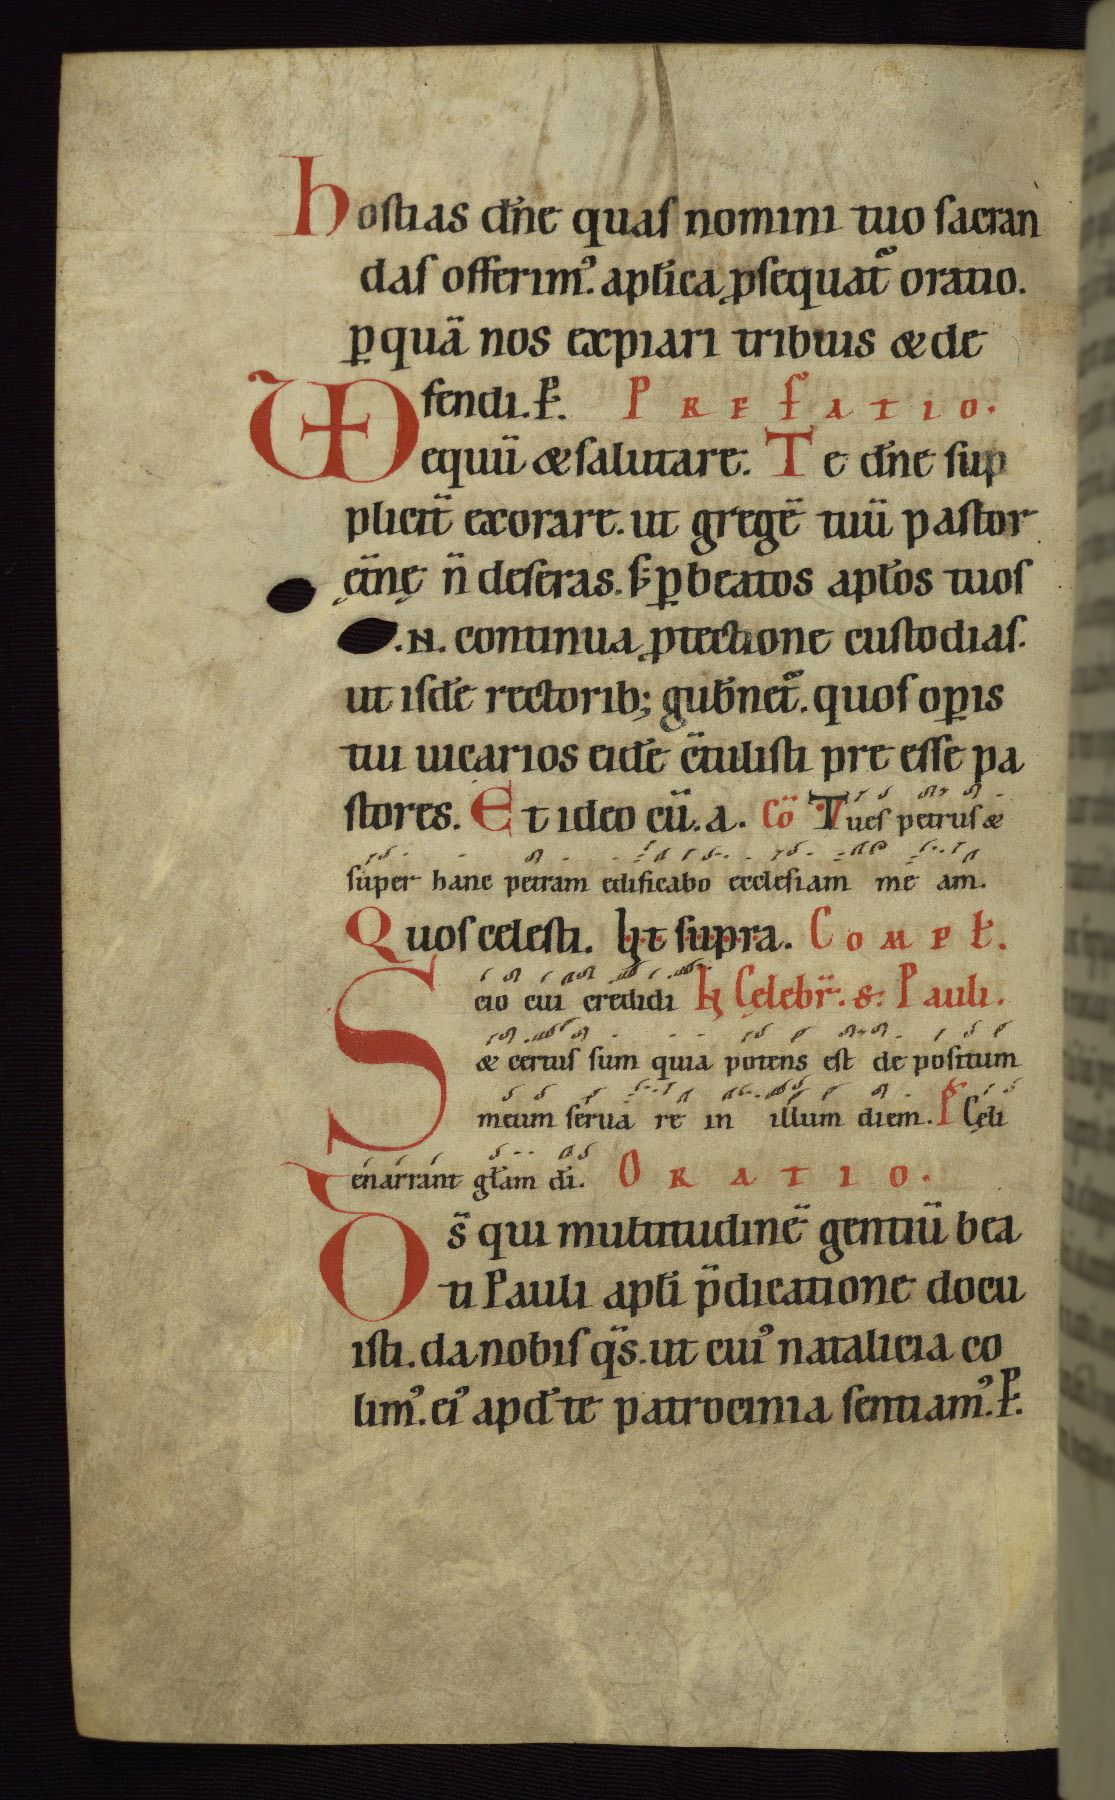 hostias dn̄e quas nomini tuo sacran
das offerim᾽. apl̄ica ꝓsequat᷑ oratio.
ꝑ quā nos expiari tribuis & de
fendi. P̄. Prefatio.
VD equū & salutare. Te dn̄e sup
plicit̄ exorare. ut gregē tuū pastor
ęt̄nę n̄ deseras. s; ꝑ beatos apl̄os tuos
.N. continua ꝓtectione custodias.
ut isdē rectorib; gub̄net᷑. quos oꝑis
tui uicarios eidē c̄tulisti pre esse pa
stores. Et ideo cū. a. Cō Tu es petrus &
super hanc petram edificabo ecclesiam me am.
Quos celesti. Ht supra. Compl̄.
Scio cui credidi K̄ Celebr̄. s. Pauli.
& certus sum quia potens est de positum
meum serua re in illum diem. Ps Cęli
enarrant gl̄am dī. Oratio.
Ds̄ qui multitudinē gentiū bea
ti Pauli apl̄i p̄dicatione docu
isti. da nobis qs̄. ut cui᾽ natalicia co
lim᾽. ei᾽ apd̄ te patrocinia sentiam᾽. P̄.